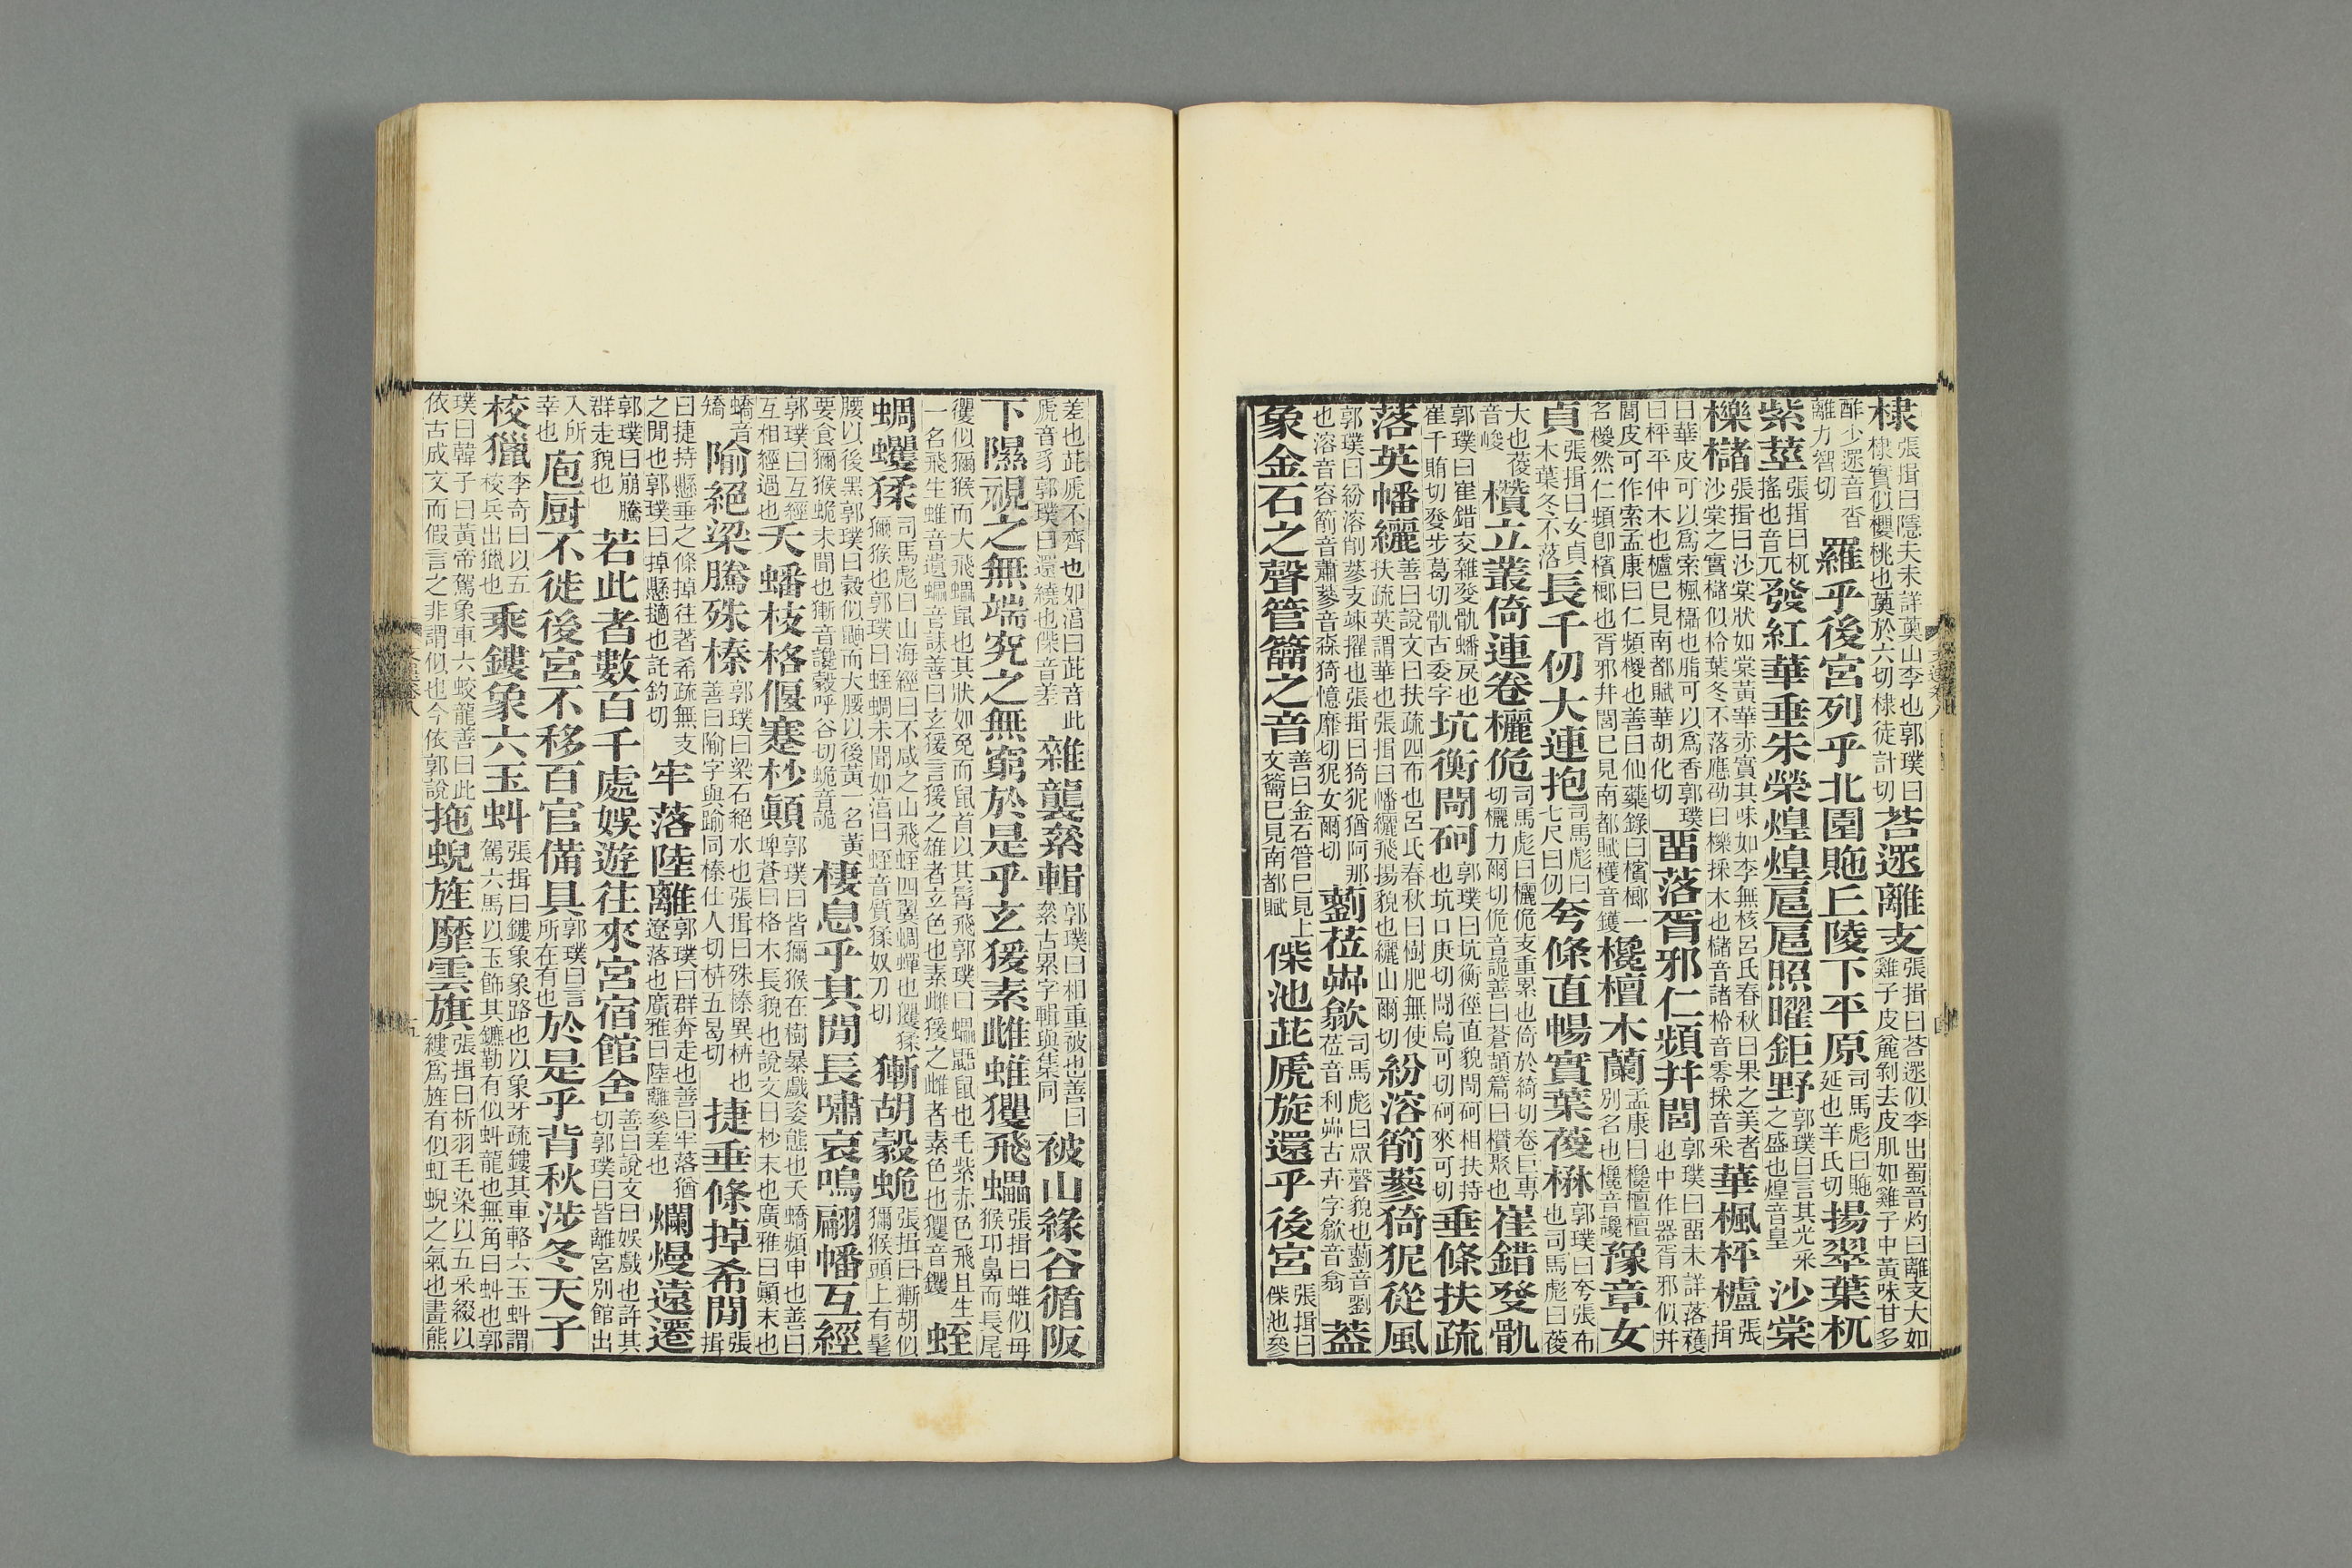 棣張揖曰隱夫未詳薁山李也郭璞曰棣實似櫻桃也薁於六切棣徒計切荅遝離支張揖曰荅遝似李出蜀晉灼曰離支大如雞子皮麄剝去皮肌如雞子中黃味甘多
酢少遝音沓離力智切羅乎後宮列乎北園貤丘陵下平原司馬彪曰貤延也羊氏切揚翠葉杌
紫莖張揖曰杌搖也音兀發紅華垂朱榮煌煌扈扈照曜鉅野郭璞曰言其光采之盛也煌音皇沙棠
櫟櫧張揖曰沙棠狀如棠黃華赤實其味如李無核呂氏春秋曰果之美者沙棠之實櫧似柃葉冬不落應劭曰櫟採木也櫧音諸柃音零採音采華楓枰櫨張揖
曰華皮可以爲索楓欇也脂可以爲香郭璞曰枰平仲木也櫨已見南都賦華胡化切畱落胥邪仁頻并閭郭璞曰畱未詳落檴也中作器胥邪似并
閭皮可作索孟康曰仁頻椶也善曰仙藥錄曰檳榔一名椶然仁頻卽檳榔也胥邪并閭已見南都賦檴音鑊欃檀木蘭孟康曰欃檀檀別名也欃音讒豫章女
貞張揖曰女貞木葉冬不落長千仞大連抱司馬彪曰七尺曰仞夸條直暢實葉葰楙郭璞曰夸張布也司馬彪曰葰
大也葰音峻欑立叢倚連卷欐佹司馬彪曰欐佹支重累也倚於綺切卷巨專切欐力爾切佹音詭善曰蒼頡篇曰欑聚也崔錯癹骫
郭璞曰崔錯交雜癹骫蟠戾也崔千賄切癹步葛切骫古委字坑衡閜砢郭璞曰坑衡徑直貌閜砢相扶持也坑口庚切閜烏可切砢來可切垂條扶疏
落英幡纚善曰說文曰扶疏四布也呂氏春秋曰樹肥無使扶疏英謂華也張揖曰幡纚飛揚貌也纚山爾切紛溶箾蔘猗狔從風
郭璞曰紛溶削蔘支竦擢也張揖曰猗狔猶阿那也溶音容箾音蕭蔘音森猗憶靡切狔女爾切藰莅芔歙司馬彪曰眾聲貌也藰音劉莅音利芔古卉字歙音翕蓋
象金石之聲管籥之音善曰金石管已見上文籥已見南都賦傑池茈虒旋還乎後宮張揖曰傑池參
差也茈虒不齊也如淳曰茈音此虒音豸郭璞曰還繞也傑音差雜襲絫輯郭璞曰相重被也善曰絫古累字輯與集同被山緣谷循阪
下隰視之無端究之無窮於是乎玄猨素雌蜼玃飛蠝張揖曰蜼似母猴卬鼻而長尾
玃似獼猴而大飛蠝鼠也其狀如兔而鼠首以其髯飛郭璞曰蠝鼯鼠也毛紫赤色飛且生一名飛生蜼音遺蠝音誄善曰玄猨言猨之雄者玄色也素雌猨之雌者素色也玃音钁蛭
蜩蠼猱司馬彪曰山海經曰不咸之山飛蛭四翼蜩蟬也玃猱獼猴也郭璞曰蛭蜩未聞如淳曰蛭音質猱奴刀切獑胡豰蛫張揖曰獑胡似獼猴頭上有髦
腰以後黑郭璞曰豰似鼬而大腰以後黃一名黃要食獼猴蛫未聞也獑音讒豰呼谷切蛫音詭棲息乎其間長嘯哀鳴翩幡互經
郭璞曰互經互相經過也夭蟜枝格偃蹇杪顚郭璞曰皆獼猴在樹暴戲姿態也夭蟜頻申也善曰埤蒼曰格木長貌也說文曰杪末也廣雅曰顚末也
蟜音矯隃絕梁騰殊榛郭璞曰梁石絕水也張揖曰殊榛異枿也善曰隃字與踰同榛仕人切枿五曷切捷垂條掉希閒張揖
曰捷持懸垂之條掉往著希疏無支之閒也郭璞曰掉懸擿也託釣切牢落陸離郭璞曰群奔走也善曰牢落猶遼落也廣雅曰陸離參差也爛熳遠遷
郭璞曰崩騰群走貌也若此者數百千處娛遊往來宮宿館舍善曰說文曰娛戲也許其切郭璞曰皆離宮別館出
入所幸也庖厨不徙後宮不移百官備具郭璞曰言所在有也於是乎背秋涉冬天子
校獵李奇曰以五校兵出獵也乘鏤象六玉虯張揖曰鏤象象路也以象牙疏鏤其車輅六玉虯謂駕六馬以玉飾其鑣勒有似虯龍也無角曰虯也郭
璞曰韓子曰黃帝駕象車六蛟龍善曰此依古成文而假言之非謂似也今依郭說拖蜺旌靡雲旗張揖曰析羽毛染以五采綴以縷爲旌有似虹蜺之氣也畫熊